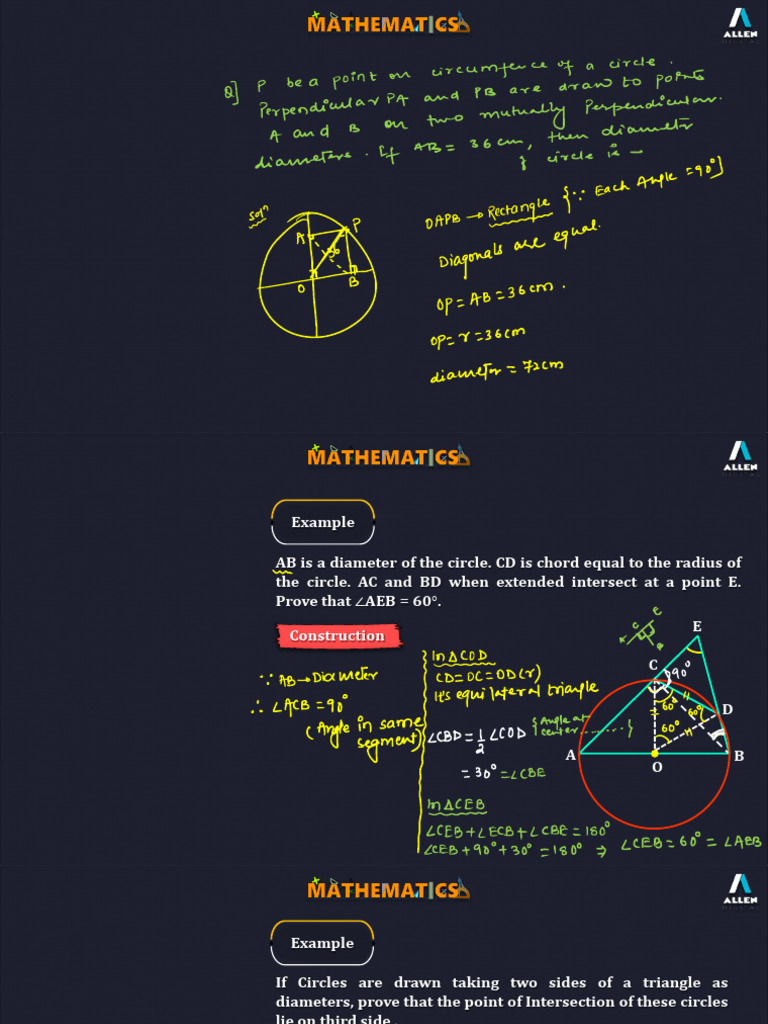 MATHEMATICS
ALLEN
Q] P be a point on circumfence of a circle.
Perpendicular PA and PB are draw to points
A and B on two mutually Perpendicular
diameters. If AB = 36 cm, then diameter
of circle is –
Solⁿ
A
P
36
O
B
OAPB → Rectangle {∵ Each Angle = 90°]
Diagonals are equal.
OP = AB = 36 cm.
OP = r = 36 cm
diameter = 72 cm
MATHEMATICS
ALLEN
Example
AB is a diameter of the circle. CD is chord equal to the radius of
the circle. AC and BD when extended intersect at a point E.
Prove that ∠AEB = 60°.
Construction
∵ AB → Diameter
∴ ∠ACB = 90°
(Angle in same
segment)
In △COD
CD = OC = OD (r)
It's equilateral triangle
∠CBD = 1/2 ∠COD {Angle at
center ..........}
= 30° = ∠CBE
In △CEB
∠CEB + ∠ECB + ∠CBE = 180°
∠CEB + 90° + 30° = 180° ⇒ ∠CEB = 60° = ∠AEB
E
C
90°
60°
60°
60°
D
A
O
B
MATHEMATICS
ALLEN
Example
If Circles are drawn taking two sides of a triangle as
diameters, prove that the point of Intersection of these circles
lie on third side .